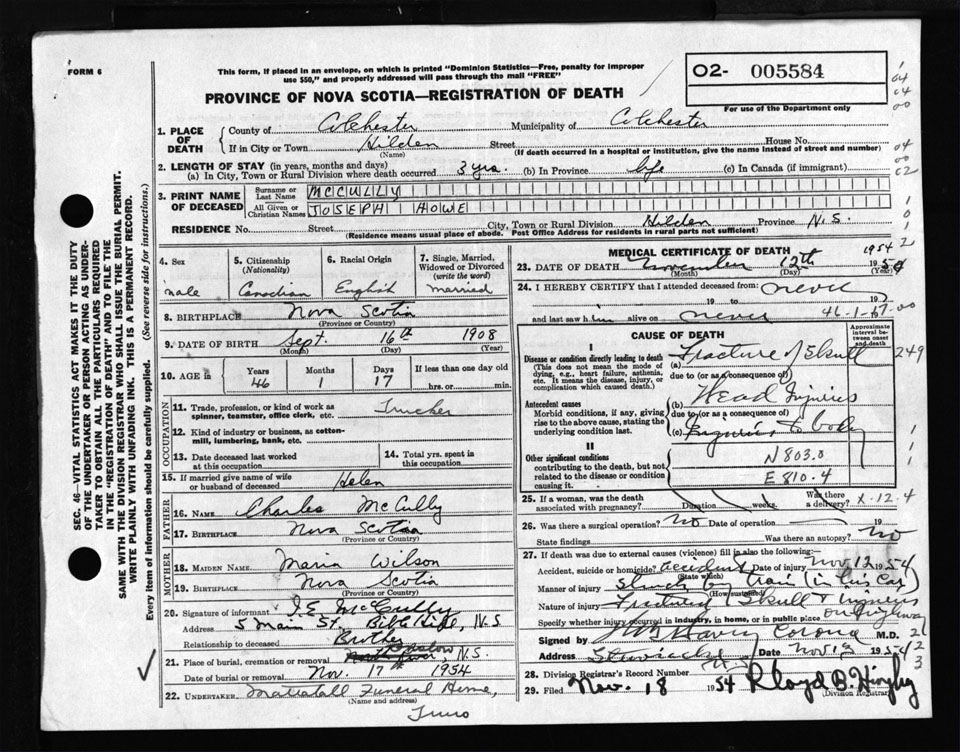 FORM 6
This form, if placed in an envelope, on which is printed "Dominion Statistics—Free, penalty for improper
use $50," and properly addressed will pass through the mail "FREE"
PROVINCE OF NOVA SCOTIA—REGISTRATION OF DEATH
O2- 005584
For use of the Department only
SEC. 46—VITAL STATISTICS ACT MAKES IT THE DUTY
OF THE UNDERTAKER OR PERSON ACTING AS UNDER-
TAKER TO OBTAIN ALL THE PARTICULARS REQUIRED
IN THE "REGISTRATION OF DEATH" AND TO FILE THE
SAME WITH THE DIVISION REGISTRAR WHO SHALL ISSUE THE BURIAL PERMIT.
WRITE PLAINLY WITH UNFADING INK. THIS IS A PERMANENT RECORD.
Every item of information should be carefully supplied. (See reverse side for instructions.)
1. PLACE OF DEATH
County of Colchester Municipality of Colchester
If in City or Town Hilden Street House No.
(Name) (If death occurred in a hospital or institution, give the name instead of street and number)
2. LENGTH OF STAY (in years, months and days)
(a) In City, Town or Rural Division where death occurred 3 yrs. (b) In Province life (c) In Canada (if immigrant)
3. PRINT NAME OF DECEASED
Surname or Last Name MCCULLY
All Given or Christian Names JOSEPH HOWE
RESIDENCE No. Street City, Town or Rural Division Hilden Province N.S.
(Residence means usual place of abode. Post Office Address for residents in rural parts not sufficient)
4. Sex
male
5. Citizenship (Nationality)
Canadian
6. Racial Origin
English
7. Single, Married, Widowed or Divorced (write the word)
married
8. BIRTHPLACE Nova Scotia
(Province or Country)
9. DATE OF BIRTH Sept. 16th 1908
(Month) (Day) (Year)
10. AGE in
Years 46
Months 1
Days 17
If less than one day old
hrs. or min.
OCCUPATION
11. Trade, profession, or kind of work as
spinner, teamster, office clerk, etc. Trucker
12. Kind of industry or business, as cotton-
mill, lumbering, bank, etc.
13. Date deceased last worked
at this occupation
14. Total yrs. spent in
this occupation
15. If married give name of wife
or husband of deceased Helen
FATHER
16. NAME Charles McCully
17. BIRTHPLACE Nova Scotia
(Province or Country)
MOTHER
18. MAIDEN NAME Maria Wilson
19. BIRTHPLACE Nova Scotia
(Province or Country)
20. Signature of informant I.E. McCully
Address 5 Main St. Bible Hill, N.S.
Relationship to deceased Brother
21. Place of burial, cremation or removal Onslow, N.S.
Date of burial or removal Nov. 17th 1954
22. UNDERTAKER Mattatall Funeral Home,
(Name and address)
Truro
MEDICAL CERTIFICATE OF DEATH
1954
23. DATE OF DEATH November 12th 1954
(Month) (Day) (Year)
24. I HEREBY CERTIFY that I attended deceased from never
19 to 19
and last saw him alive on never
46-1-17
CAUSE OF DEATH
Approximate interval between onset and death
I
Disease or condition directly leading to death
(This does not mean the mode of
dying, e.g., heart failure, asthenia,
etc. It means the disease, injury, or
complication which caused death.)
Fracture of Skull
249
due to (or as a consequence of)
Antecedent causes
Morbid conditions, if any, giving
rise to the above cause, stating the
underlying condition last.
(b) Head Injuries
due to (or as a consequence of)
(c) Injuries to body
II
Other significant conditions
contributing to the death, but not
related to the disease or condition
causing it.
N 803.0
E 810.4
25. If a woman, was the death
associated with pregnancy? Duration weeks. Was there a delivery?
X-12.4
26. Was there surgical operation? No Date of operation 19
State findings Was there an autopsy? No
27. If death was due to external causes (violence) fill in also the following:—
Accident, suicide or homicide? accident Date of injury Nov 12 1954
(State which)
Manner of injury Struck by train (in his car)
(How sustained)
Nature of injury Fractured Skull & Injuries
Specify whether injury occurred in industry, in home, or in public place on highway
Signed by Coroner M.D.
Address Stewiacke Date Nov 13 1954
28. Division Registrar's Record Number
29. Filed Nov. 18 1954 Lloyd B.
(Division Registrar)